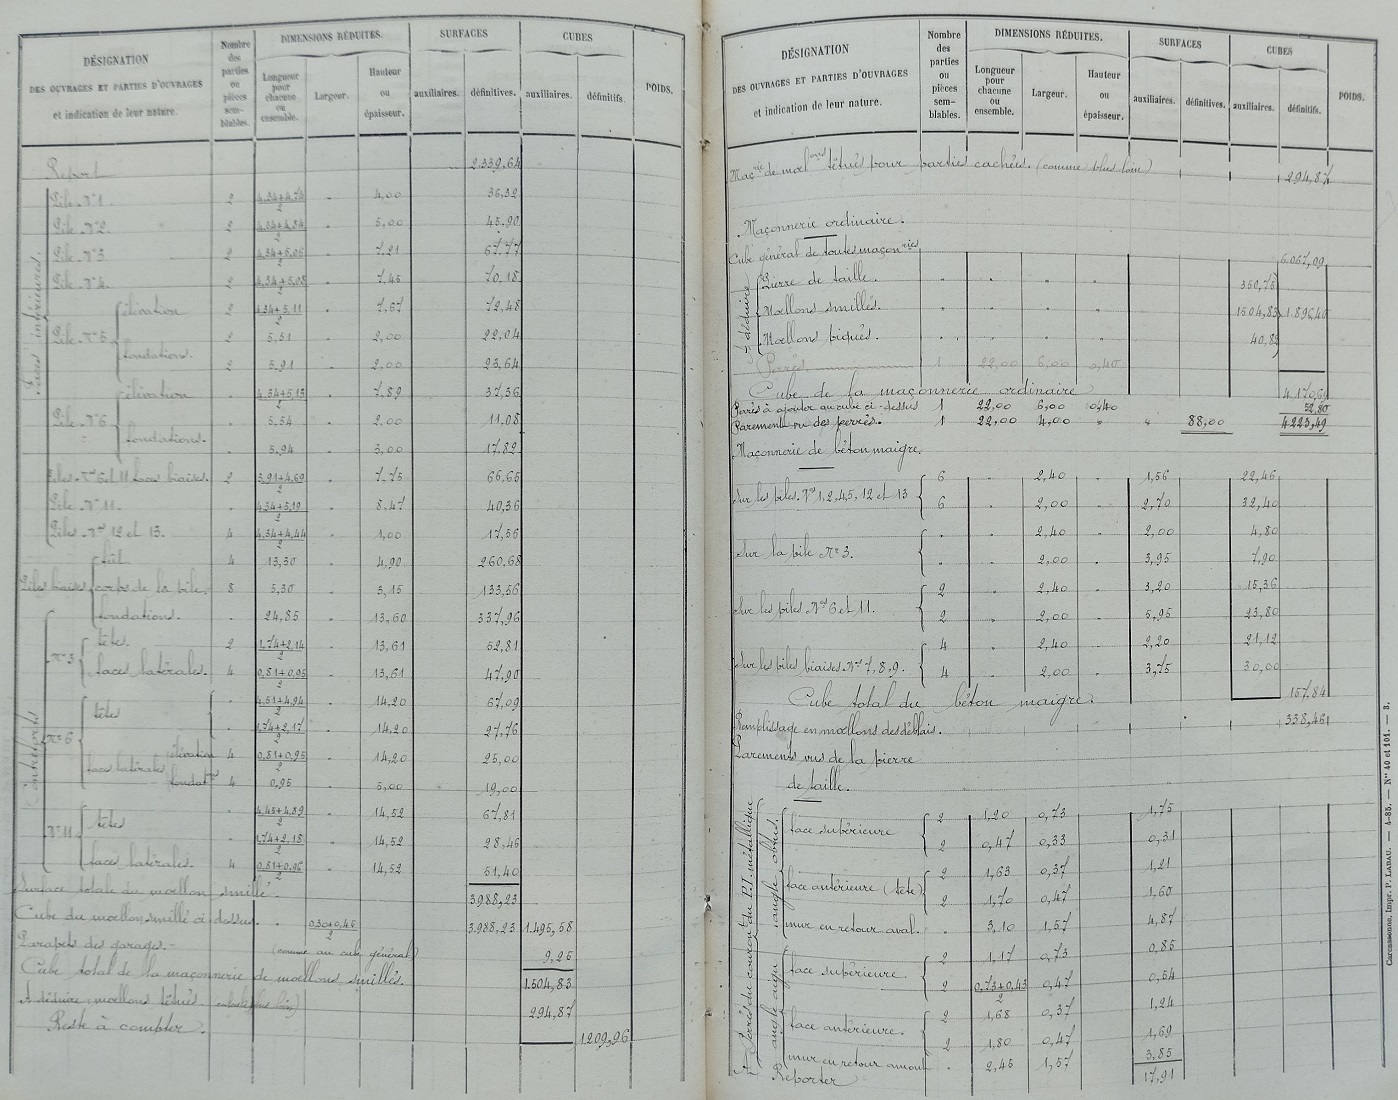 DÉSIGNATION
DES OUVRAGES ET PARTIES D'OUVRAGES
et indication de leur nature.
Nombre des parties ou pièces semblables.
DIMENSIONS RÉDUITES.
Longueur pour chacune ou ensemble.
Largeur.
Hauteur ou épaisseur.
SURFACES
auxiliaires.
définitives.
CUBES
auxiliaires.
définitifs.
POIDS.
Report 2.339,64
Pile N°1. 2 4,34+4,74/2 " 4,00 36,32
Pile N°2. 2 4,34+4,84/2 " 5,00 45,90
Pile N°3. 2 4,34+5,06/2 " 7,21 67,77
Pile N°4. 2 4,34+5,08/2 " 7,45 70,18
Pile N°5 élévation 2 4,34+5,11/2 " 7,67 72,48
fondations. " 5,51 " 2,00 22,04
2 5,91 " 2,00 23,64
Pile N°6 élévation " 4,34+5,13/2 " 7,89 37,36
fondations. " 5,54 " 2,00 11,08
" 5,94 " 3,00 17,82
Piles N°6 et 11 faces biaises. 2 3,91+4,69/2 " 7,75 66,65
Pile N°11. " 4,34+5,19/2 " 8,47 40,36
Piles N°s 12 et 13. 4 4,34+4,44/2 " 1,00 17,56
Piles biaises fût 4 13,30 " 4,90 260,68
corps de la pile. 8 5,30 " 3,15 133,56
fondations. " 24,85 " 13,60 337,96
Contreforts
N°3 têtes. 2 1,74+2,14/2 " 13,61 52,81
faces latérales. 4 0,81+0,95/2 " 13,61 47,90
N°6 têtes " 4,51+4,94/2 " 14,20 67,09
" 1,74+2,17/2 " 14,20 27,76
faces latérales élévation 4 0,81+0,95/2 " 14,20 25,00
fondat.ons 4 0,95 " 5,00 19,00
N°11 têtes " 4,45+4,89/2 " 14,52 67,81
" 1,74+2,18/2 " 14,52 28,46
faces latérales. 4 0,81+0,96/2 14,52 51,40
Surface totale du moellon smillé. 3988,23
Cube du moellon smillé ci-dessus. " 0,30+0,45/2 3.988,23 1.495,58
Parapets des garages.- (comme au cube général) 9,25
Cube total de la maçonnerie de moellons smillés. 1.504,83
A déduire: moellons têtués 294,87
Reste à compter. 1209,96
DÉSIGNATION
DES OUVRAGES ET PARTIES D'OUVRAGES
et indication de leur nature.
Nombre des parties ou pièces semblables.
DIMENSIONS RÉDUITES.
Longueur pour chacune ou ensemble.
Largeur.
Hauteur ou épaisseur.
SURFACES
auxiliaires.
définitives.
CUBES
auxiliaires.
définitifs.
POIDS.
Maç.rie de moel.ons têtués pour parties cachées. (comme plus loin) 294,87
Maçonnerie ordinaire.
Cube général de toutes maçon.ries 6.067,09
à déduire
Pierre de taille. " " " " 350,75
Moellons smillés. " " " " 1504,83 1.896,40
Moellons piqués. " " " " 40,82
Perrés 1 22,00 6,00 0,40
Cube de la maçonnerie ordinaire 4.170,69
Perrés à ajouter au cube ci-dessus 1 22,00 6,00 0,40 52,80
Parement vu des perrés. 1 22,00 4,00 " " 88,00 4223,49
Maçonnerie de béton maigre.
Sur les piles N°s 1, 2, 4, 5, 12 et 13 6 " 2,40 " 1,56 22,46
6 " 2,00 " 2,70 32,40
Sur la pile N°3. " " 2,40 " 2,00 4,80
" " 2,00 " 3,95 7,90
Sur les piles N°s 6 et 11. 2 " 2,40 " 3,20 15,36
2 " 2,00 " 5,95 23,80
Sur les piles biaises N°s 7, 8, 9. 4 " 2,40 " 2,20 21,12
4 " 2,00 " 3,75 30,00
Cube total du béton maigre. 157,84
Remplissage en moellons des déblais. 338,46
Parements vus de la pierre
de taille.
angle obtus.
face supérieure 2 1,20 0,73 1,75
2 0,47 0,33 0,31
face antérieure (tête) 2 1,63 0,37 1,21
2 1,70 0,47 1,60
mur en retour aval. " 3,10 1,57 4,87
angle aigu
face supérieure. 2 1,17 0,73 0,85
2 0,73+0,43/2 0,47 0,54
face antérieure. 2 1,68 0,37 1,24
2 1,80 0,47 1,69
mur en retour amont " 2,45 1,57 3,85
Reporter 17,91
Carcassonne, Impr. P. LABAU. — 4-85. — Nos 40 et 101. — 3.